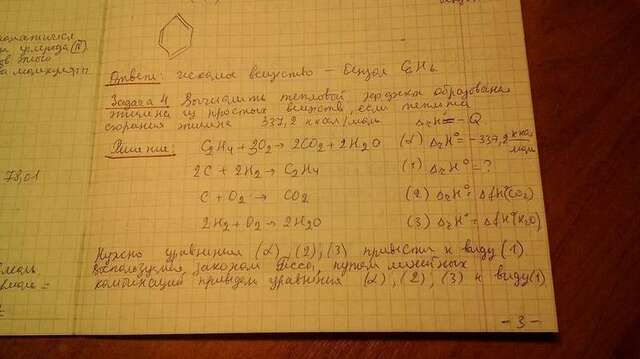 Ответ: искомое вещество – бензол C₆H₆
Задача 4 Вычислить тепловой эффект образования
этилена из простых веществ, если теплота
сгорания этилена 337,2 ккал/моль ΔrH° = -Q
Решение: C₂H₄ + 3O₂ → 2CO₂ + 2H₂O (α) ΔrH° = -337,2 ккал/моль
2C + 2H₂ → C₂H₄ (1) ΔrH° = ?
C + O₂ → CO₂ (2) ΔrH° = ΔfH°(CO₂)
2H₂ + O₂ → 2H₂O (3) ΔrH° = ΔfH°(H₂O)
Нужно уравнения (α), (2), (3) привести к виду (1)
Воспользуемся законом Гесса, путём линейных
комбинаций приведём уравнения (α), (2), (3) к виду (1)
углерода (II)
78,01
- 3 -